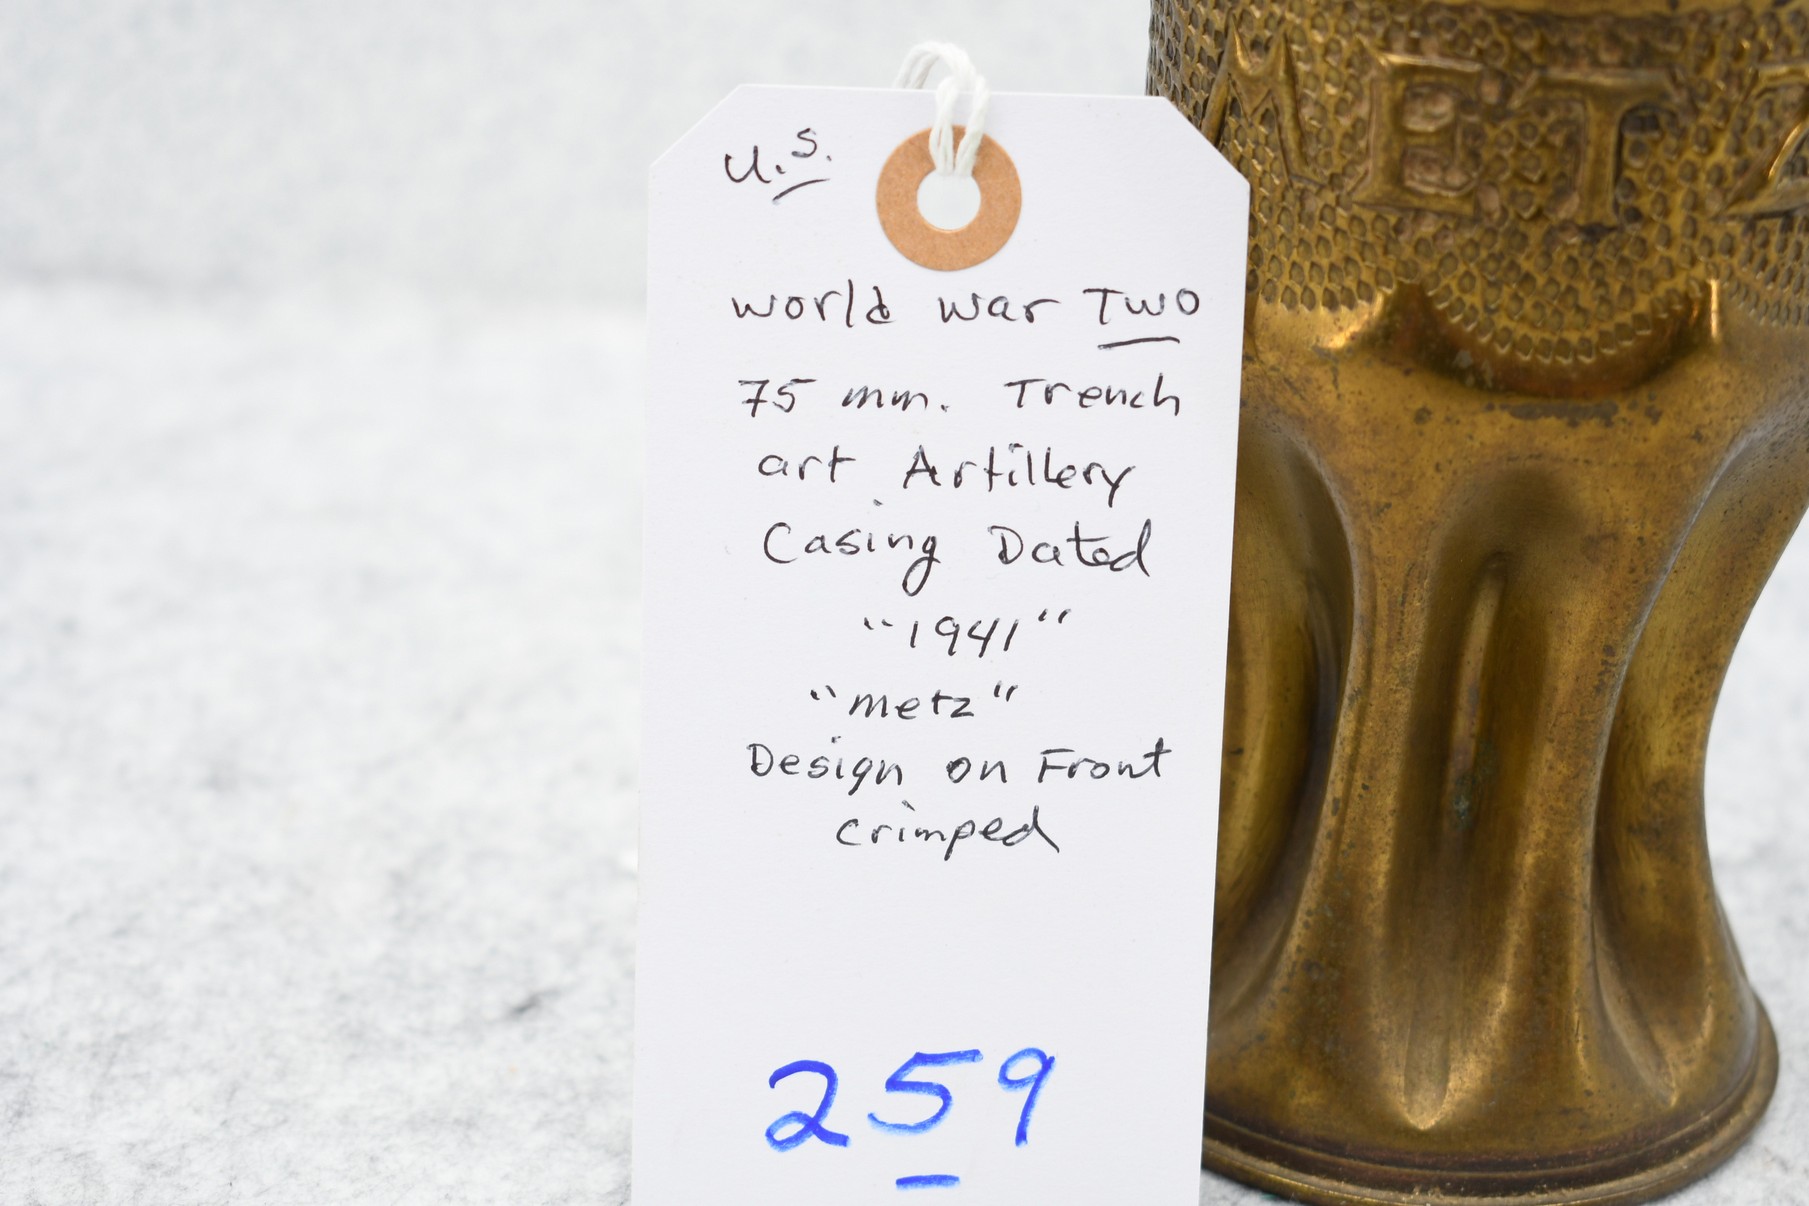 U.S.
World War Two
75 mm. Trench
art Artillery
Casing Dated
"1941"
"Metz"
Design on Front
crimped
259
METZ